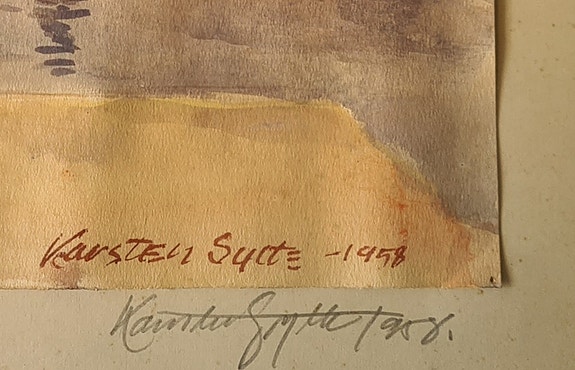 Karsten Sytte -1958
Karsten Sytte 1958.